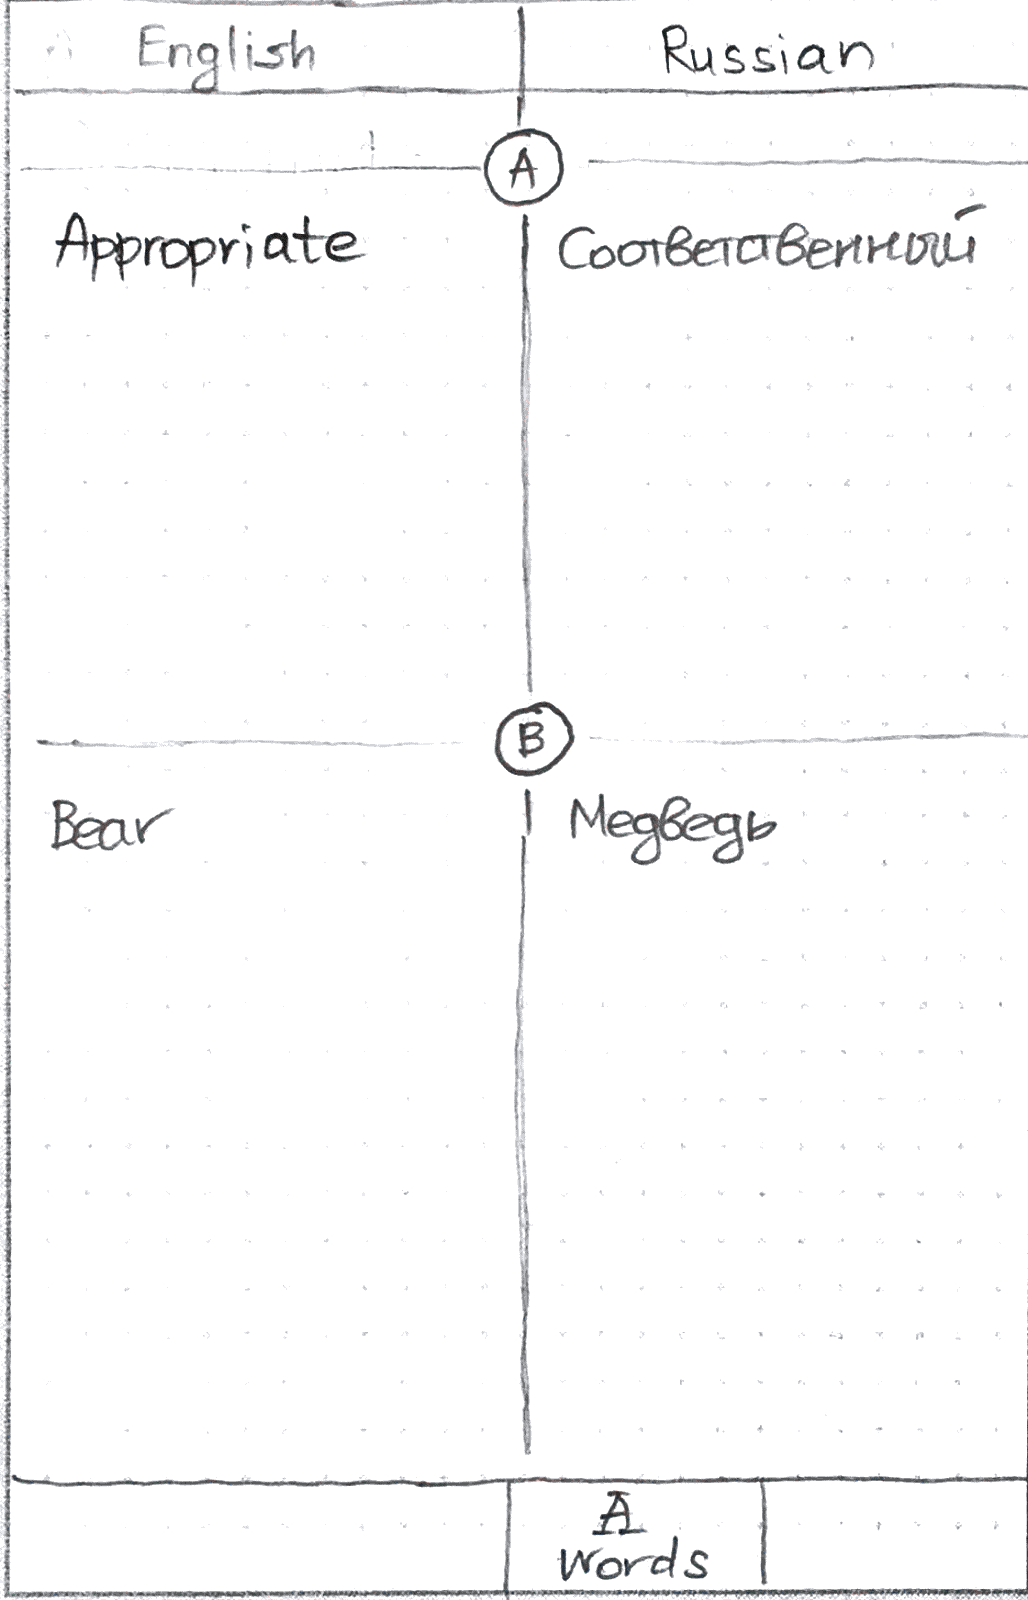 English
Russian
A
Appropriate
Соответственный
B
Bear
Медведь
A
words